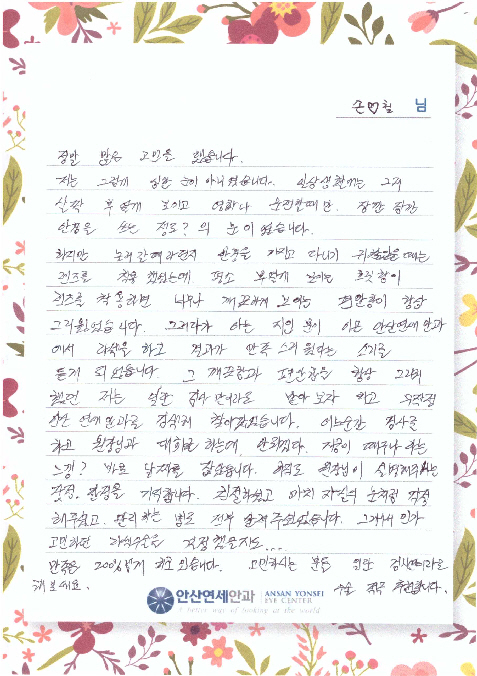 손♡철 님
정말 많은 고민을 했습니다.
저는 그렇게 심한 눈이 아니었습니다. 일상생활에는 그저
살짝 뿌옇게 보이고 영화나 운전할때만. 잠깐 잠깐
안경을 쓰는 정도? 의 눈이었습니다.
하지만 놀러갈때라던지 안경을 가지고 다니기 귀찮을때는
렌즈를 착용 했었는데 평소 뿌옇게 보이는
렌즈를 착용하면 너무나 깨끗하게 보이는 편안함이 항상
그리웠었습니다. 그러다가 아는 지인 분이 이곳 안산연세안과
에서 라섹을 하고 결과가 만족스러웠다는 소리를
듣게 되었습니다. 그 깨끗함과 편안함을 항상 그리워
했던 저는 일단 검사만이라도 받아보자 하고 무작정
안산 연세안과를 검색해 찾아갔었습니다. 검사를
하고 원장님과 대화를 하는데, 안되겠다. 지금이 때구나 하는
느낌? 바로 날짜를 잡았습니다. 아직도 원장님이 설명해주시는
표정을 기억합니다. 친절하셨고 마치 자신의 눈처럼 걱정
해주셨고. 관리하는 법도 전부 알려주셨었습니다. 그래서인가
고민하던 라식수술을 결정했을지도...
만족은 200%하게 하고 있습니다. 고민하시는 분들 일단 검사만이라도
해보세요. 수술 적극 추천합니다.
안산연세안과 ANSAN YONSEI EYE CENTER
A better way of looking at the world